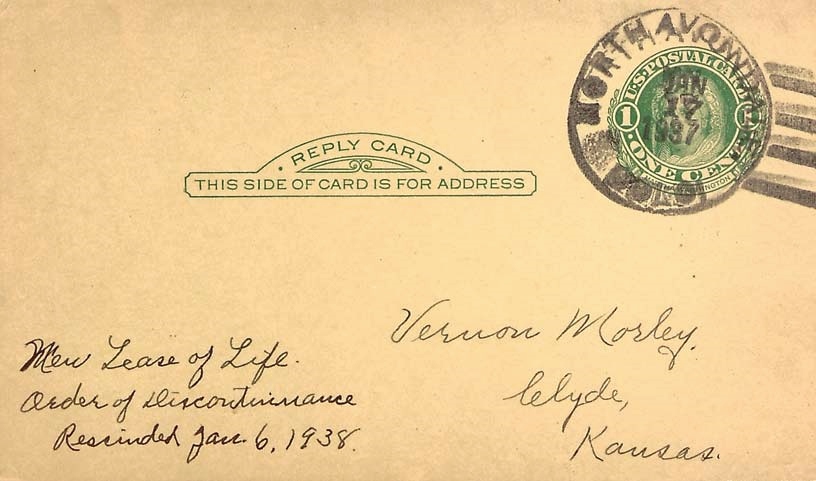 NORTH AVON
JAN
17
1937
U.S. POSTAL CARD
1
ONE CENT
REPLY CARD
THIS SIDE OF CARD IS FOR ADDRESS
Vernon Morley.
Clyde,
Kansas.
New Lease of Life.
Order of Discontinuance
Rescinded Jan. 6, 1938.